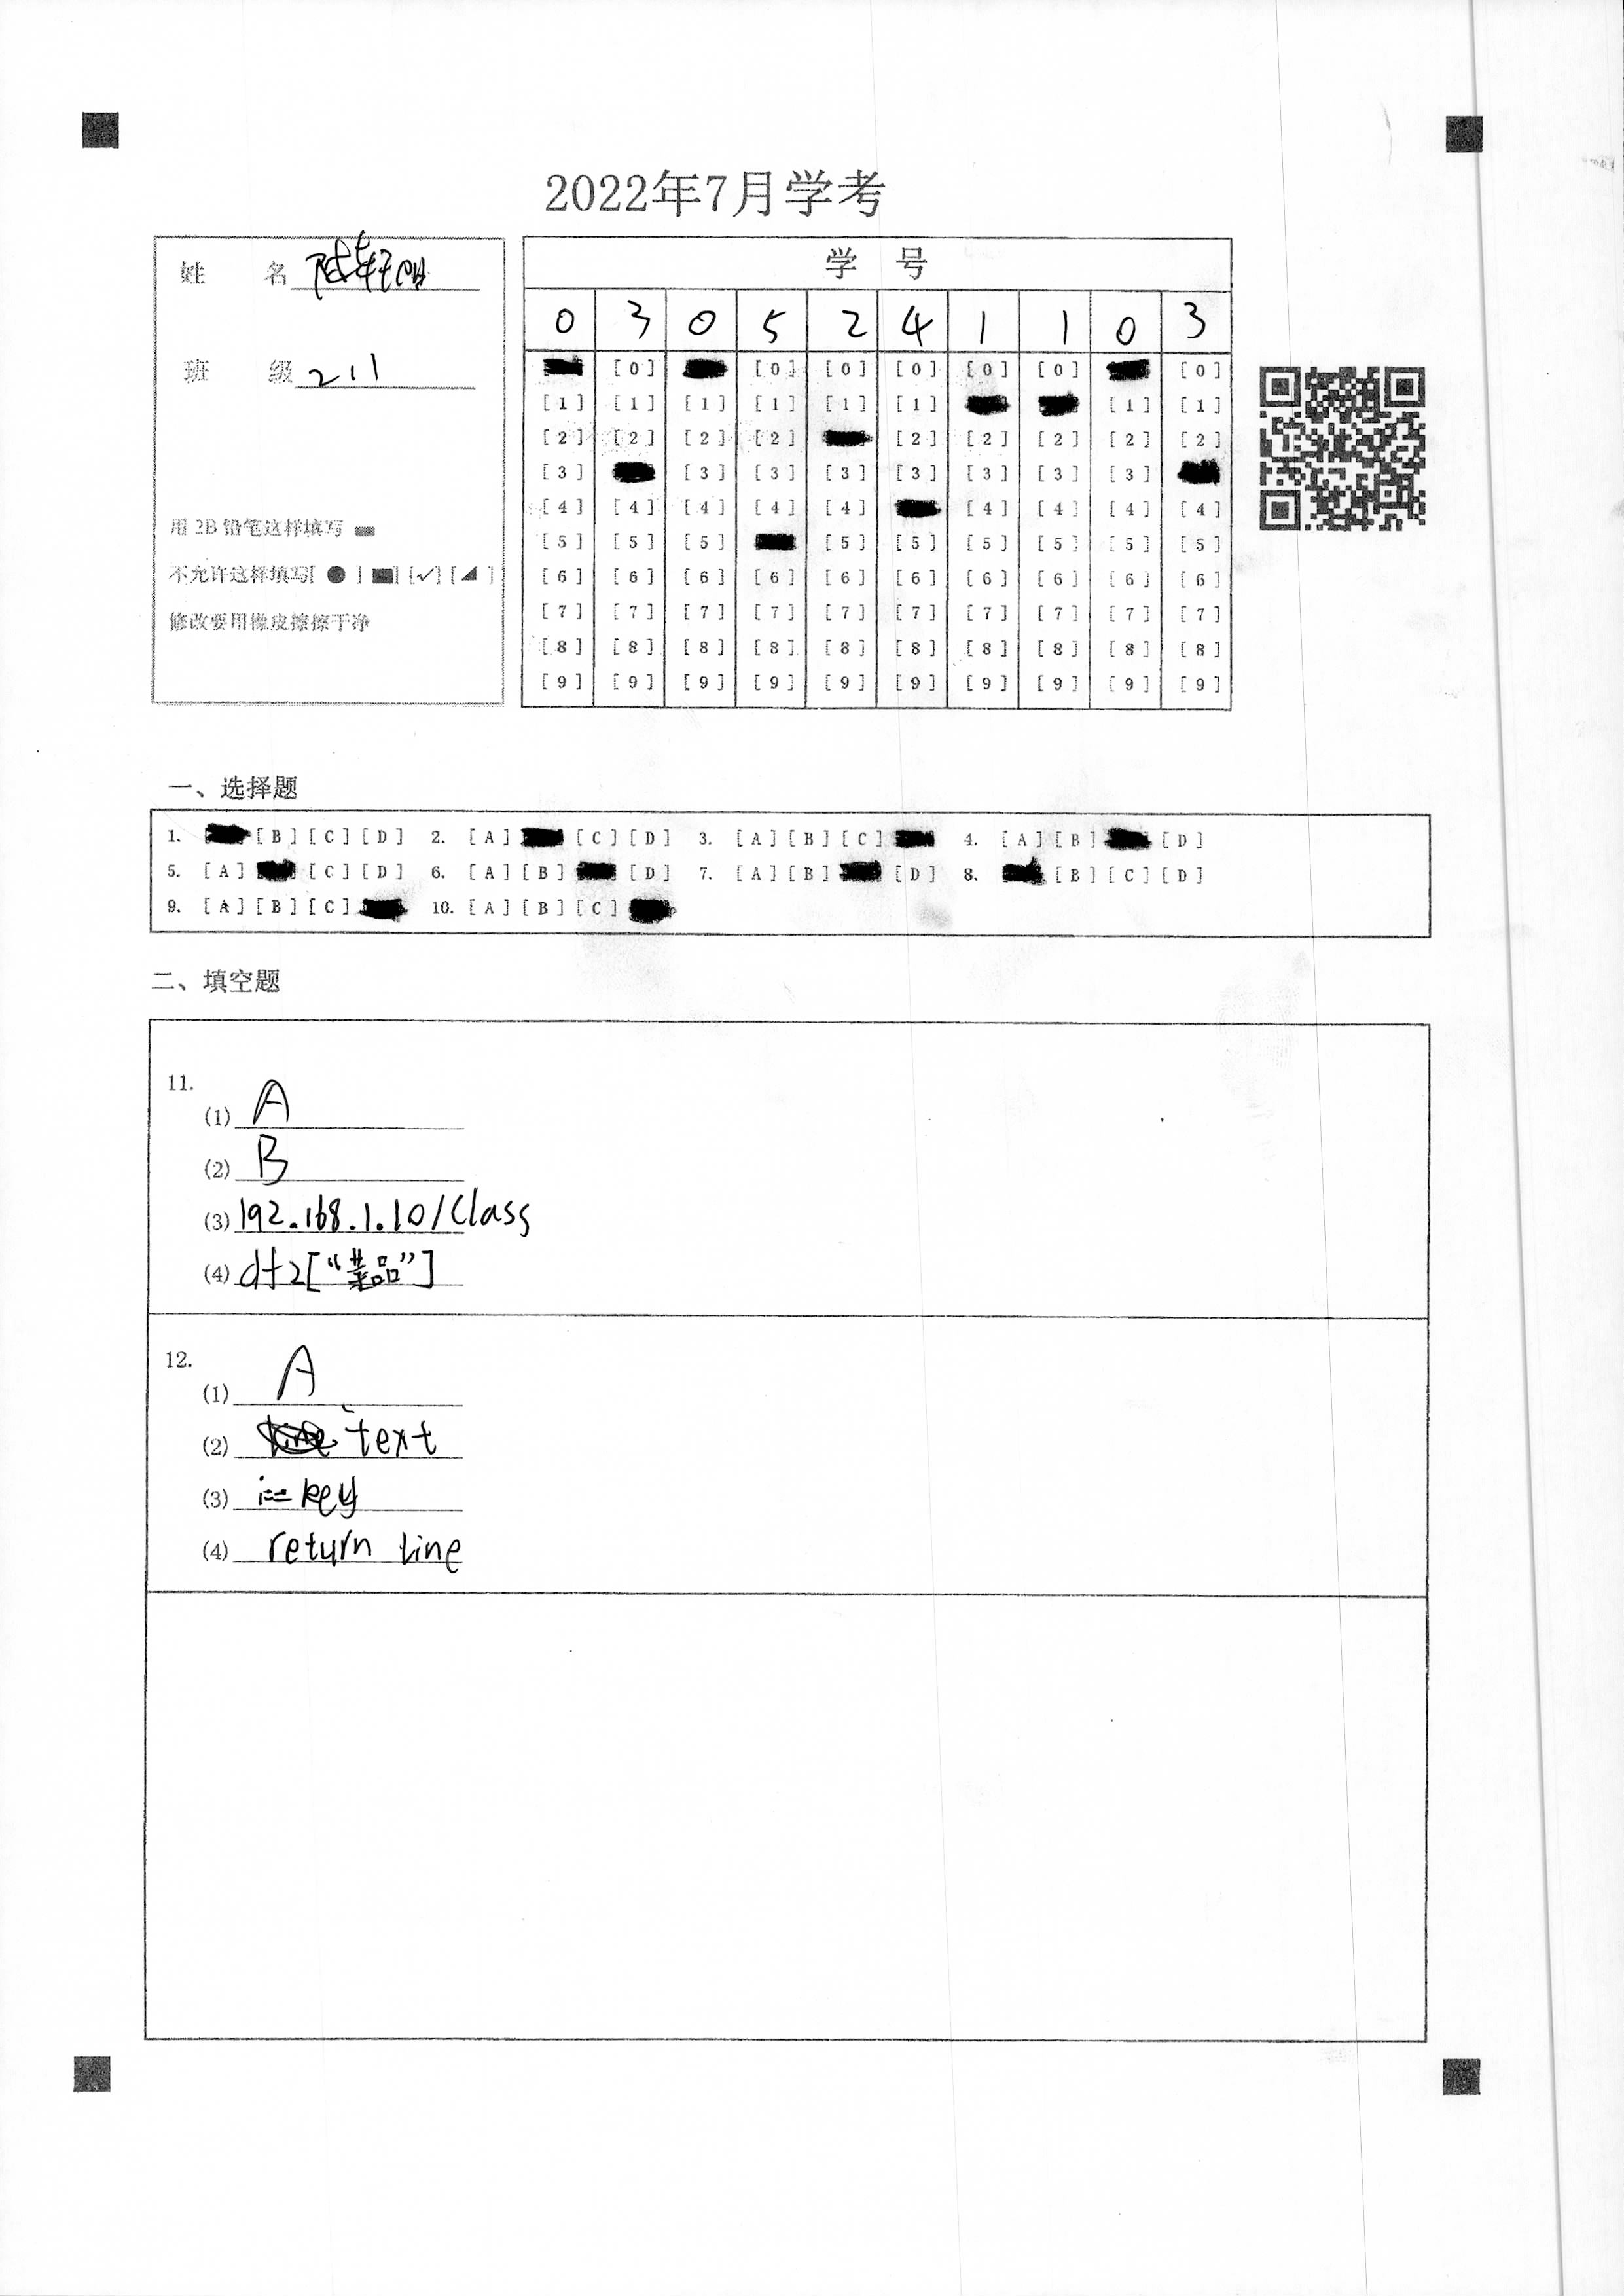 2022年7月学考
姓 名
班 级 211
用 2B 铅笔这样填写
不允许这样填写[ ● ] [■] [✓] [◢ ]
修改要用橡皮擦擦干净
学 号
0 3 0 5 2 4 1 1 0 3
[0] [0] [0] [0] [0] [0] [0]
[1] [1] [1] [1] [1] [1] [1] [1]
[2] [2] [2] [2] [2] [2] [2] [2] [2]
[3] [3] [3] [3] [3] [3] [3] [3]
[4] [4] [4] [4] [4] [4] [4] [4] [4]
[5] [5] [5] [5] [5] [5] [5] [5] [5]
[6] [6] [6] [6] [6] [6] [6] [6] [6] [6]
[7] [7] [7] [7] [7] [7] [7] [7] [7] [7]
[8] [8] [8] [8] [8] [8] [8] [8] [8] [8]
[9] [9] [9] [9] [9] [9] [9] [9] [9] [9]
一、选择题
1. [B] [C] [D] 2. [A] [C] [D] 3. [A] [B] [C] 4. [A] [B] [D]
5. [A] [C] [D] 6. [A] [B] [D] 7. [A] [B] [D] 8. [B] [C] [D]
9. [A] [B] [C] 10. [A] [B] [C]
二、填空题
11.
(1) A
(2) B
(3) 192.168.1.10/Class
(4) df2["菜品"]
12.
(1) A
(2) text
(3) i==key
(4) return line